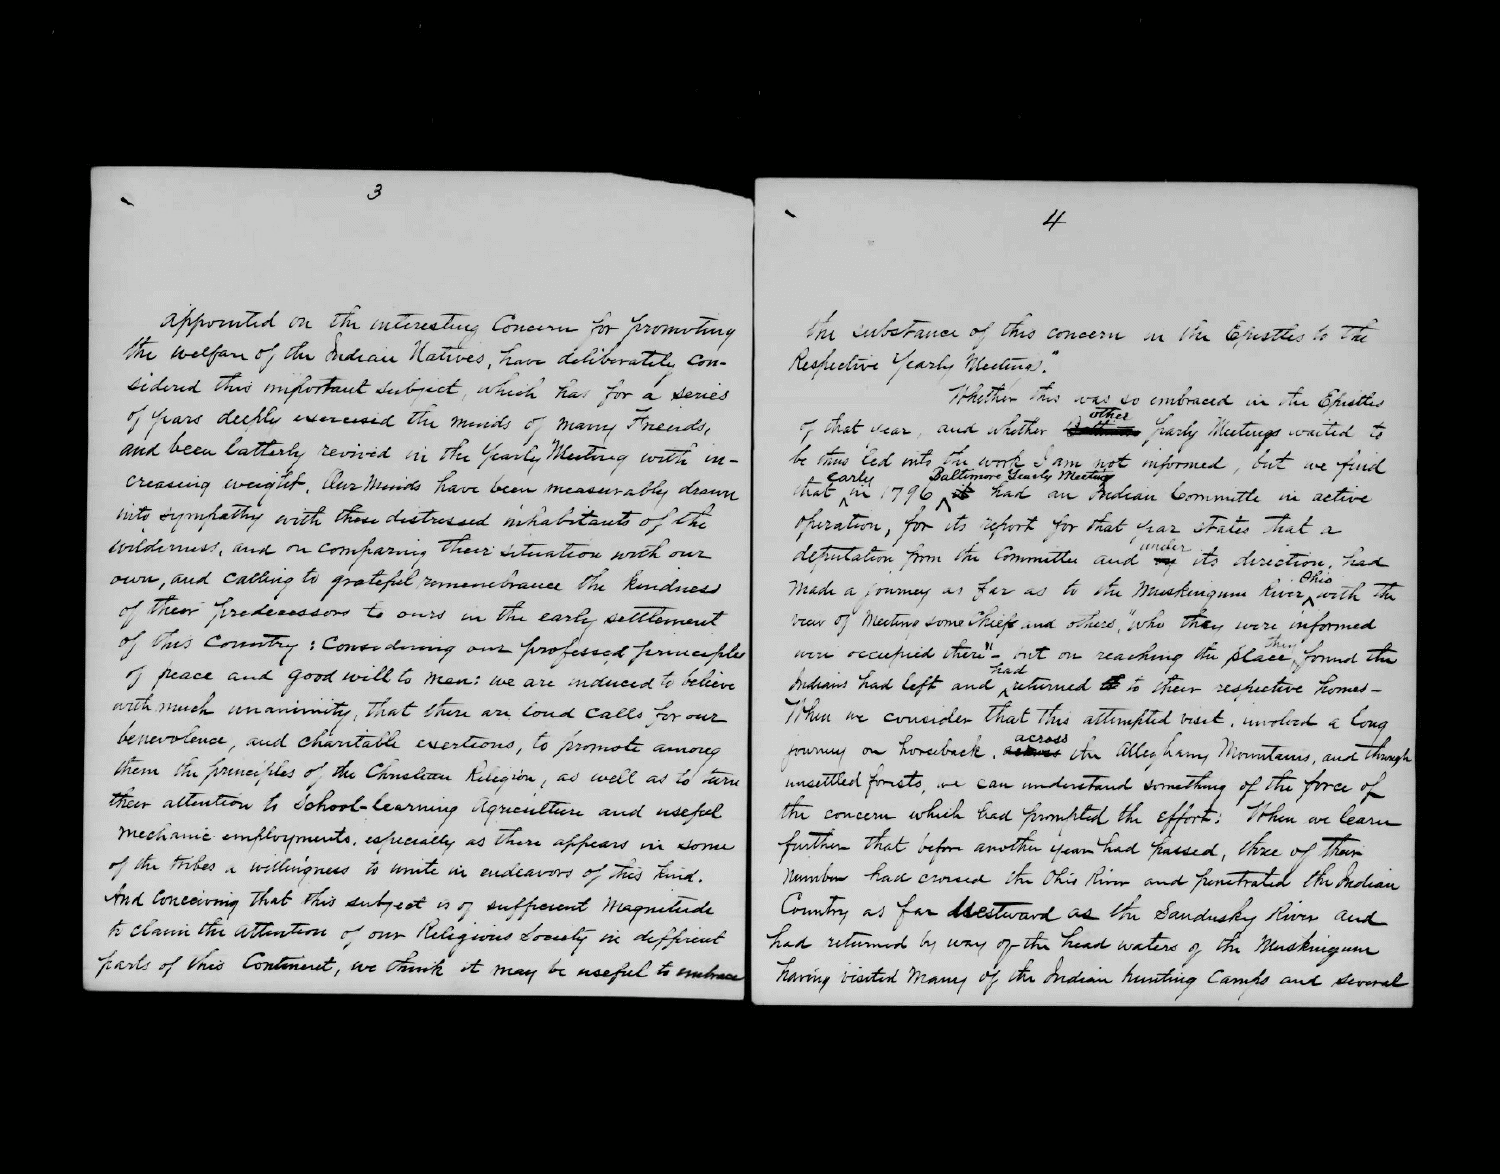 3
appointed on the interesting Concern for promoting
the welfare of the Indian Natives, have deliberately con-
sidered this important subject, which has for a series
of years deeply exercised the minds of many Friends,
and been latterly revived in the Yearly Meeting with in-
creasing weight. Our Minds have been measurably drawn
into sympathy with these distressed inhabitants of the
wilderness, and on comparing their situation with our
own, and calling to grateful remembrance the kindness
of their predecessors to ours in the early settlement
of this Country: Considering our professed principles
of peace and good will to man: we are induced to believe
with much unanimity, that there are loud calls for our
benevolence, and charitable exertions, to promote among
them the principles of the Christian Religion, as well as to turn
their attention to School-learning Agriculture and useful
mechanic employments, especially as there appears in some
of the tribes a willingness to unite in endeavors of this kind.
And Conceiving that this subject is of sufficient Magnitude
to claim the attention of our Religious Society in different
parts of this Continent, we think it may be useful to embrace
4
the substance of this concern in the Epistles to the
Respective Yearly Meetings."
Whether this was so embraced in the Epistles
of that year, and whether other Yearly Meetings waited to
be thus led into the work I am not informed, but we find
that early in 1796 Baltimore Yearly Meeting had an Indian Committee in active
operation, for its report for that year states that a
deputation from the Committee and under its direction, had
made a journey as far as to the Muskingum River Ohio with the
view of Meeting some Chiefs and others, "who they were informed
were occupied there" - but on reaching the place they found the
Indians had left and had returned to their respective homes -
When we consider that this attempted visit, involved a long
journey on horseback, across the Alleghany Mountains, and through
unsettled forests, we can understand something of the force of
the concern which had prompted the effort: When we learn
further that before another year had passed, three of their
number had crossed the Ohio River and penetrated the Indian
Country as far Westward as the Sandusky River and
had returned by way of the head waters of the Muskingum
having visited Many of the Indian hunting Camps and several